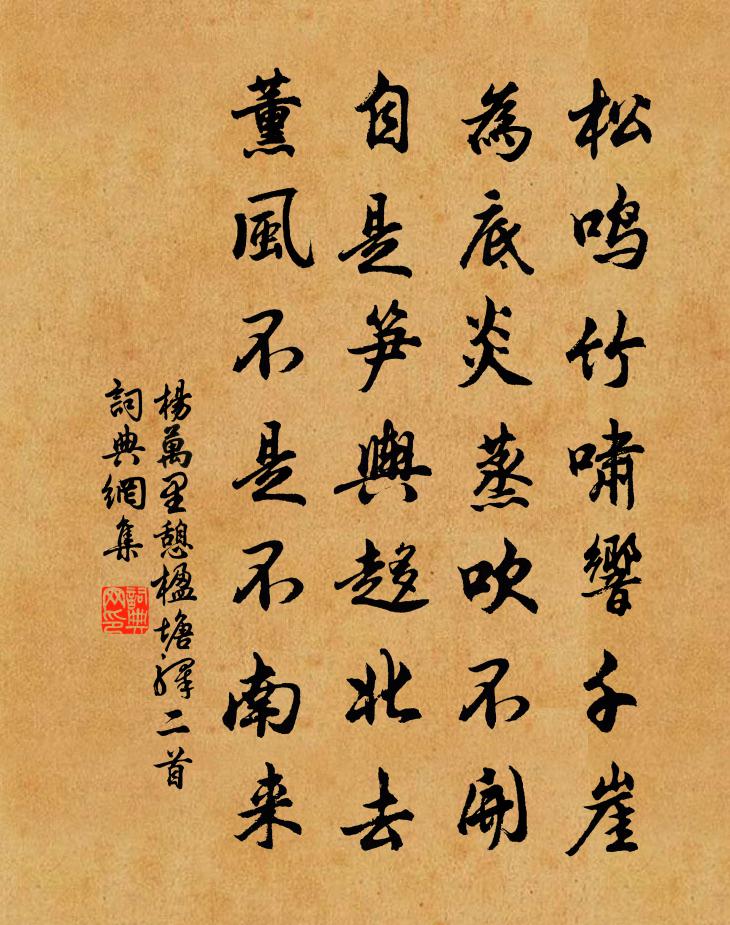 松鳴竹嘯響千崖
為底炎蒸吹不開
自是笋輿趍北去
薰風不是不南来
楊萬里憩楹塘驛二首
詞典網集
詞典
网印